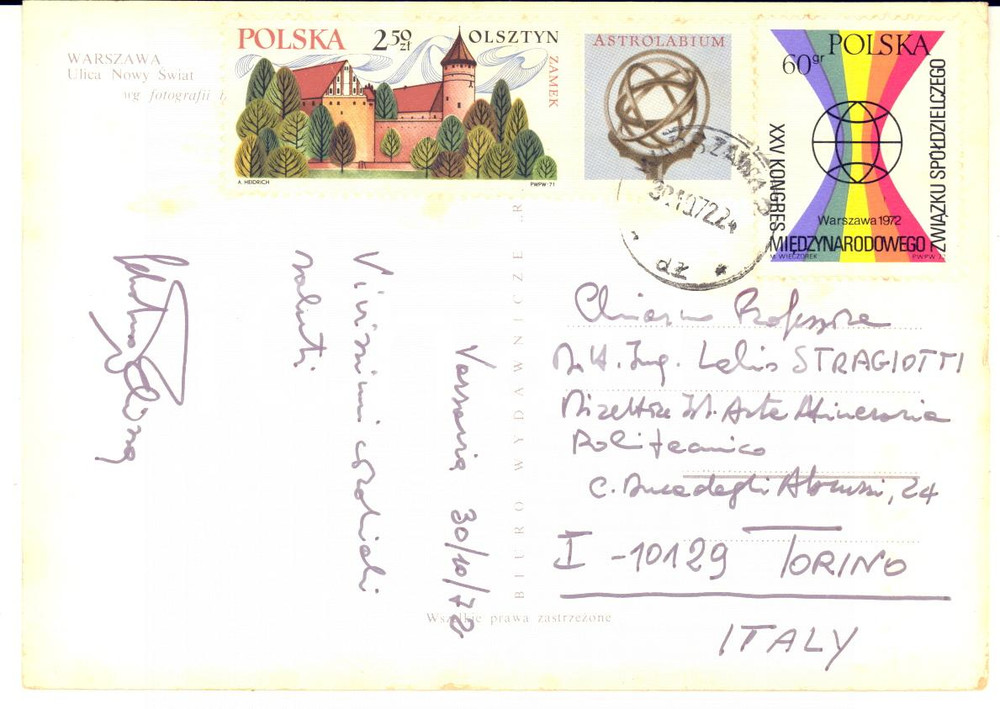 WARSZAWA
Ulica Nowy Świat
wg fotografii
POLSKA 2.50 zł OLSZTYN
ZAMEK
A. HEIDRICH PWPW-71
ASTROLABIUM
POLSKA
60 gr
XXV KONGRES
MIĘDZYNARODOWEGO
ZWIĄZKU SPÓŁDZIELCZEGO
Warszawa 1972
M. WIECZOREK PWPW
WARSZAWA
30.10.72.24
Varsavia 30/10/72
Vivissimi cordiali
saluti
BIURO WYDAWNICZE
Wszelkie prawa zastrzeżone
Chiar.mo Professore
Ing. Lelio STRAGIOTTI
Direttore Ist. Arte Mineraria
Politecnico
C. Duca degli Abruzzi, 24
I-10129 TORINO
ITALY